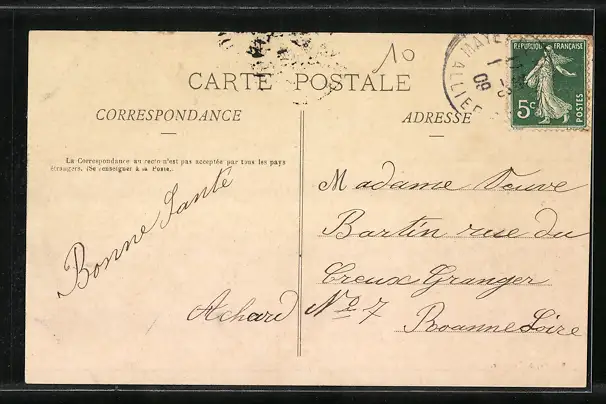 10
CARTE POSTALE
CORRESPONDANCE
ADRESSE
MAYE
ALLIER
09
REPUBLIQUE FRANÇAISE
5c
POSTES
La Correspondance au recto n'est pas acceptée par tous les pays
étrangers. (Se renseigner à la Poste.)
Bonne Santé
Achard
Madame Veuve
Bartin rue du
Creux Granger
No 7
Roanne Loire